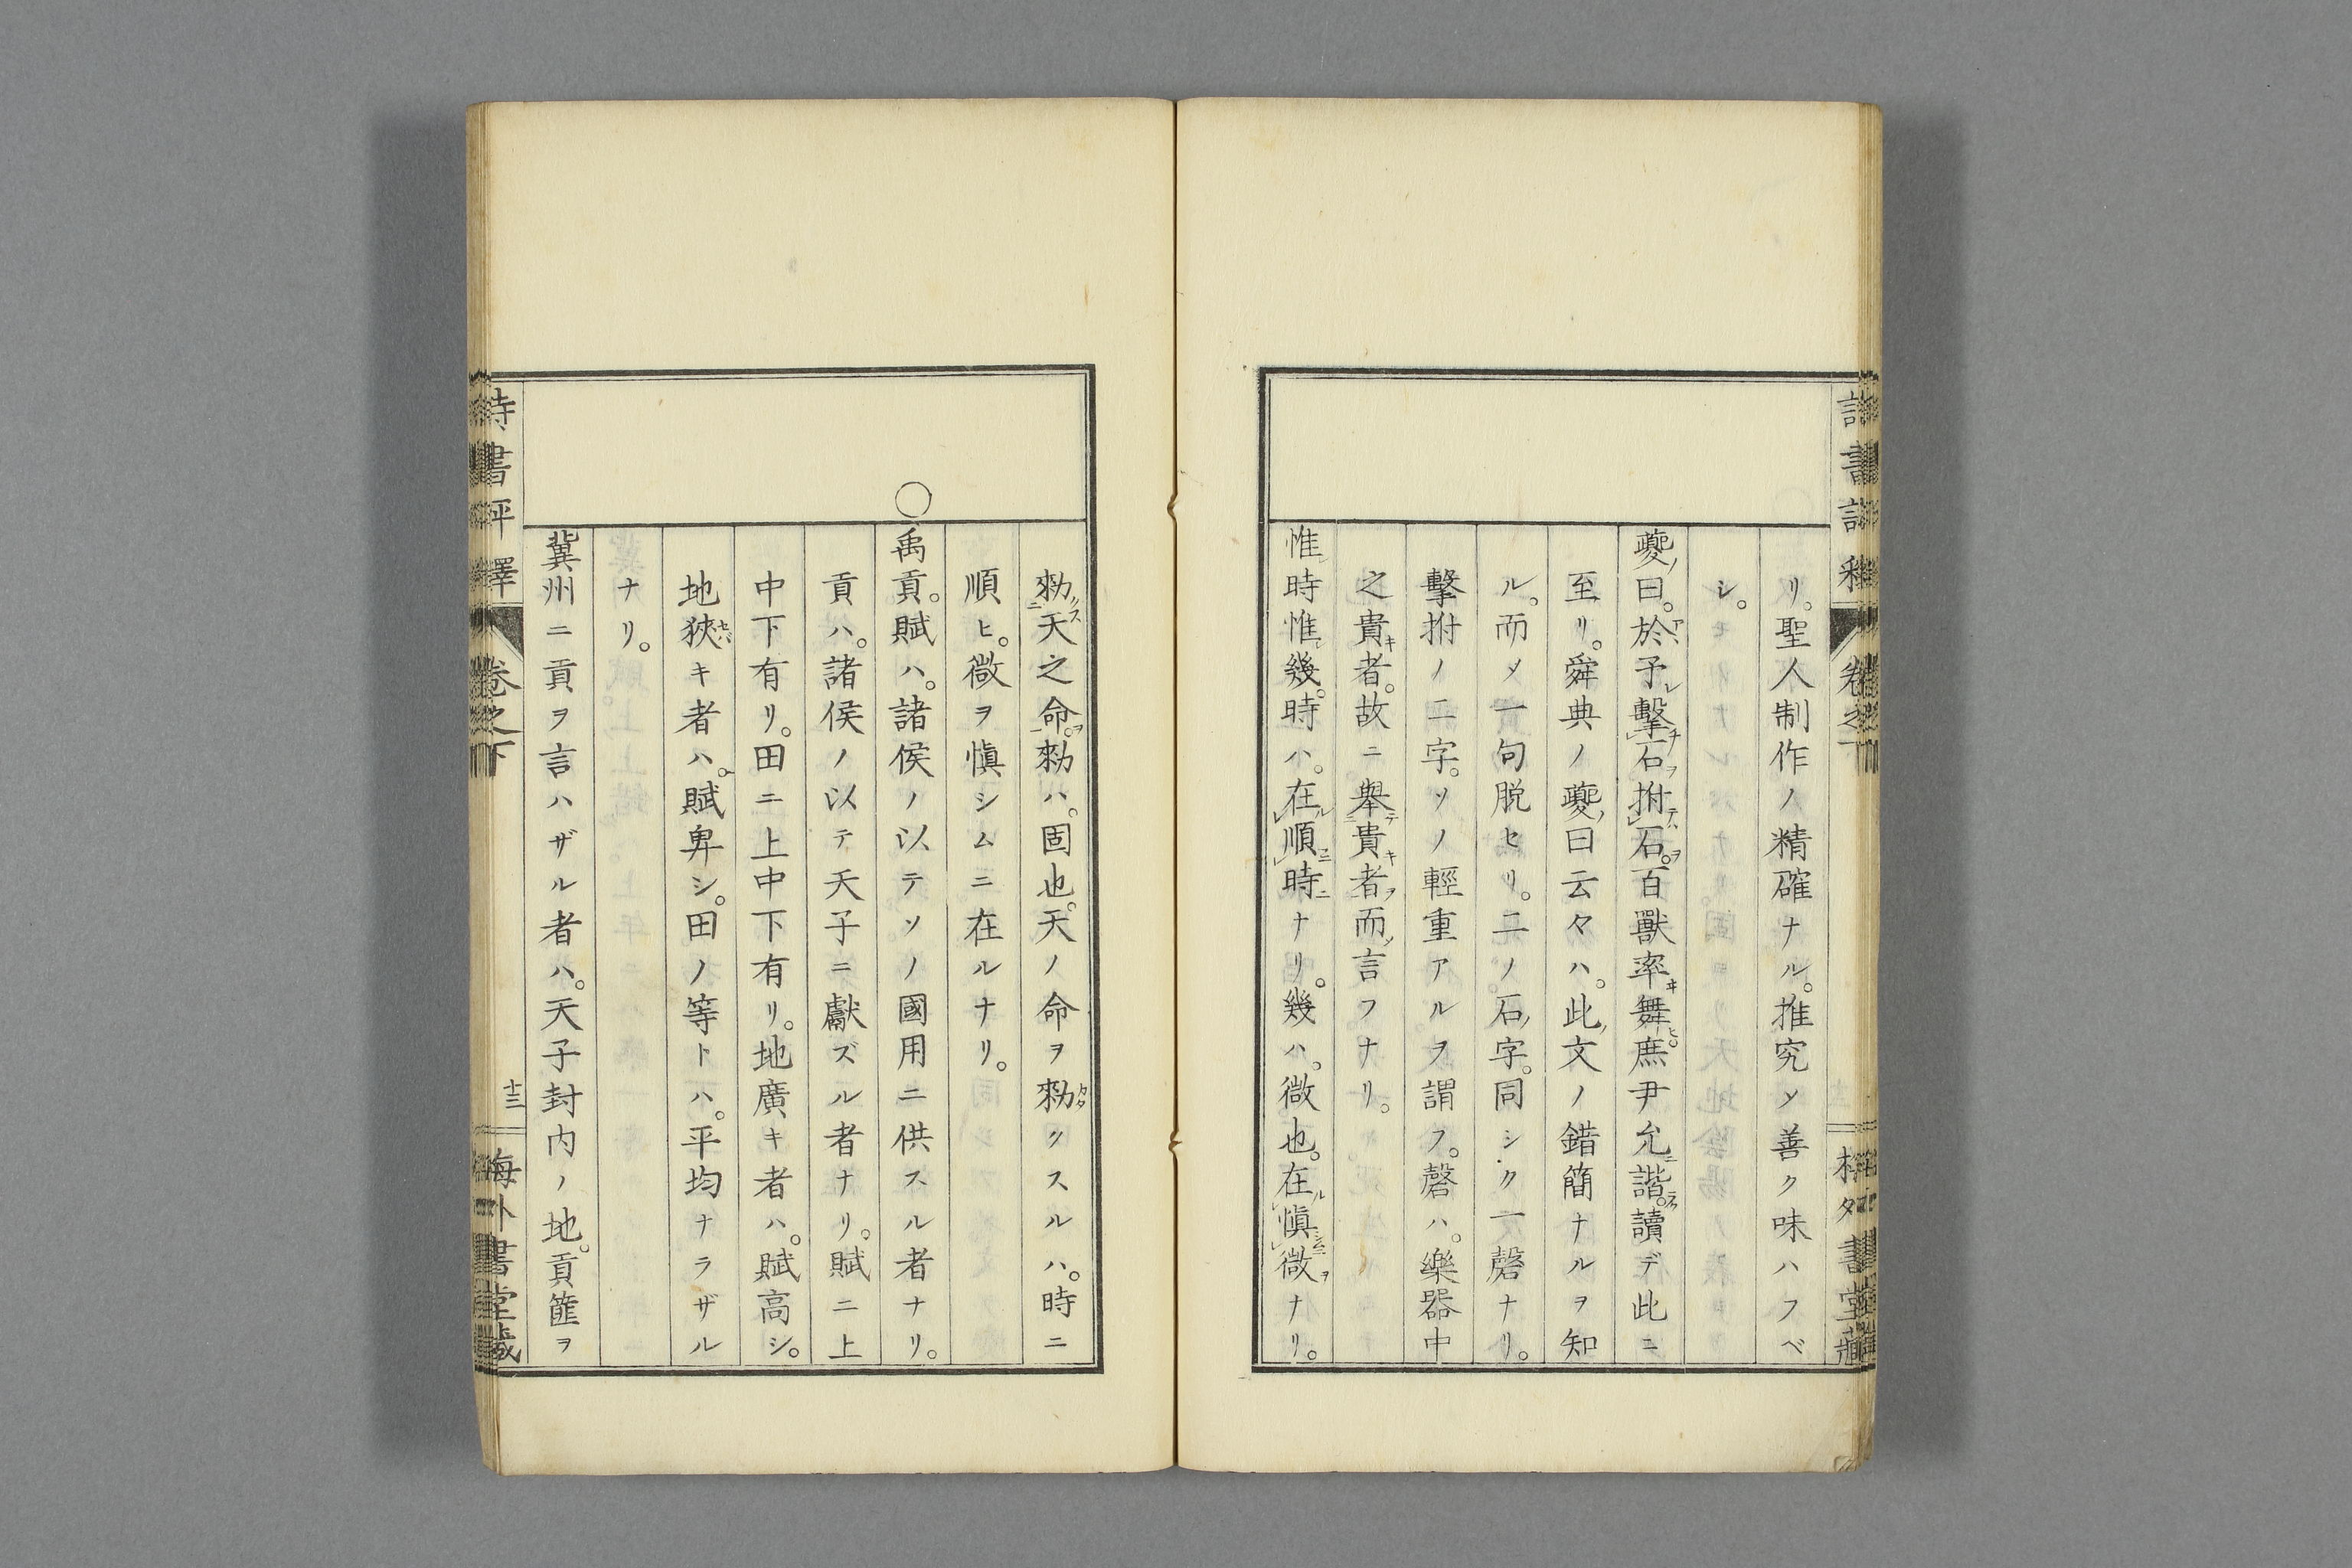 リ。聖人制作ノ精確ナル。推究シ善ク味ハフベ
シ。
夔曰。於予擊石拊石。百獸率舞。庶尹允諧。讀デ此ニ
至リ。舜典ノ夔曰云々ハ。此文ノ錯簡ナルヲ知
ル。而メ一句脱セリ。二ノ石字。同シク一磬ナリ。
擊拊ノ二字。ソノ輕重アルヲ謂フ。磬ハ。樂器中
之貴者。故ニ舉貴者而言フナリ。
惟時惟幾。時ハ。在順時ナリ。幾ハ。微也。在愼微ナリ。
勑天之命。勑ハ。固也。天ノ命ヲ勑クスルハ。時ニ
順ヒ。微ヲ愼シムニ在ルナリ。
○禹貢。賦ハ。諸侯ノ以テソノ國用ニ供スル者ナリ。
貢ハ。諸侯ノ以テ天子ニ獻ズル者ナリ。賦ニ上
中下有リ。田ニ上中下有リ。地廣キ者ハ。賦高シ。
地狹キ者ハ。賦卑シ。田ノ等トハ。平均ナラザル
ナリ。
冀州ニ貢ヲ言ハザル者ハ。天子封内ノ地。貢篚ヲ
詩書評釋
卷之下
十三
海外書堂藏